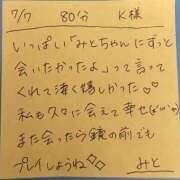 7/7 80分 K様
いっぱい「みとちゃんにずっと
会いたかったよ」って言って
くれて凄く嬉しかった♡♡
私も久々に会えて幸せ(>᎑<)
また会ったら鏡の前でも
プレイしようね◇◇
みと